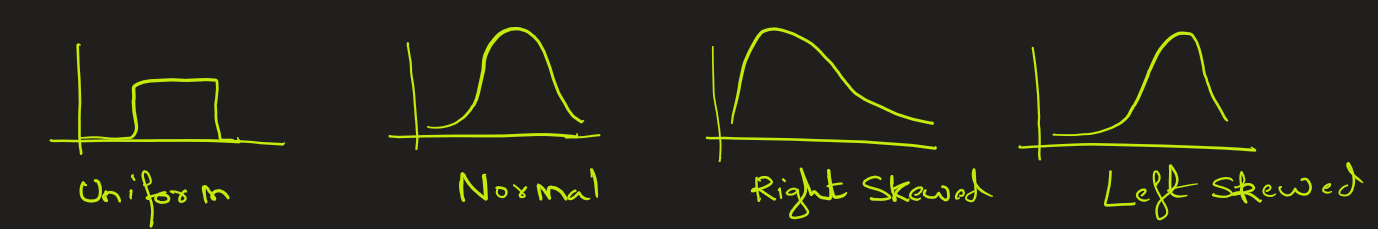 Uniform Normal Right Skewed Left Skewed